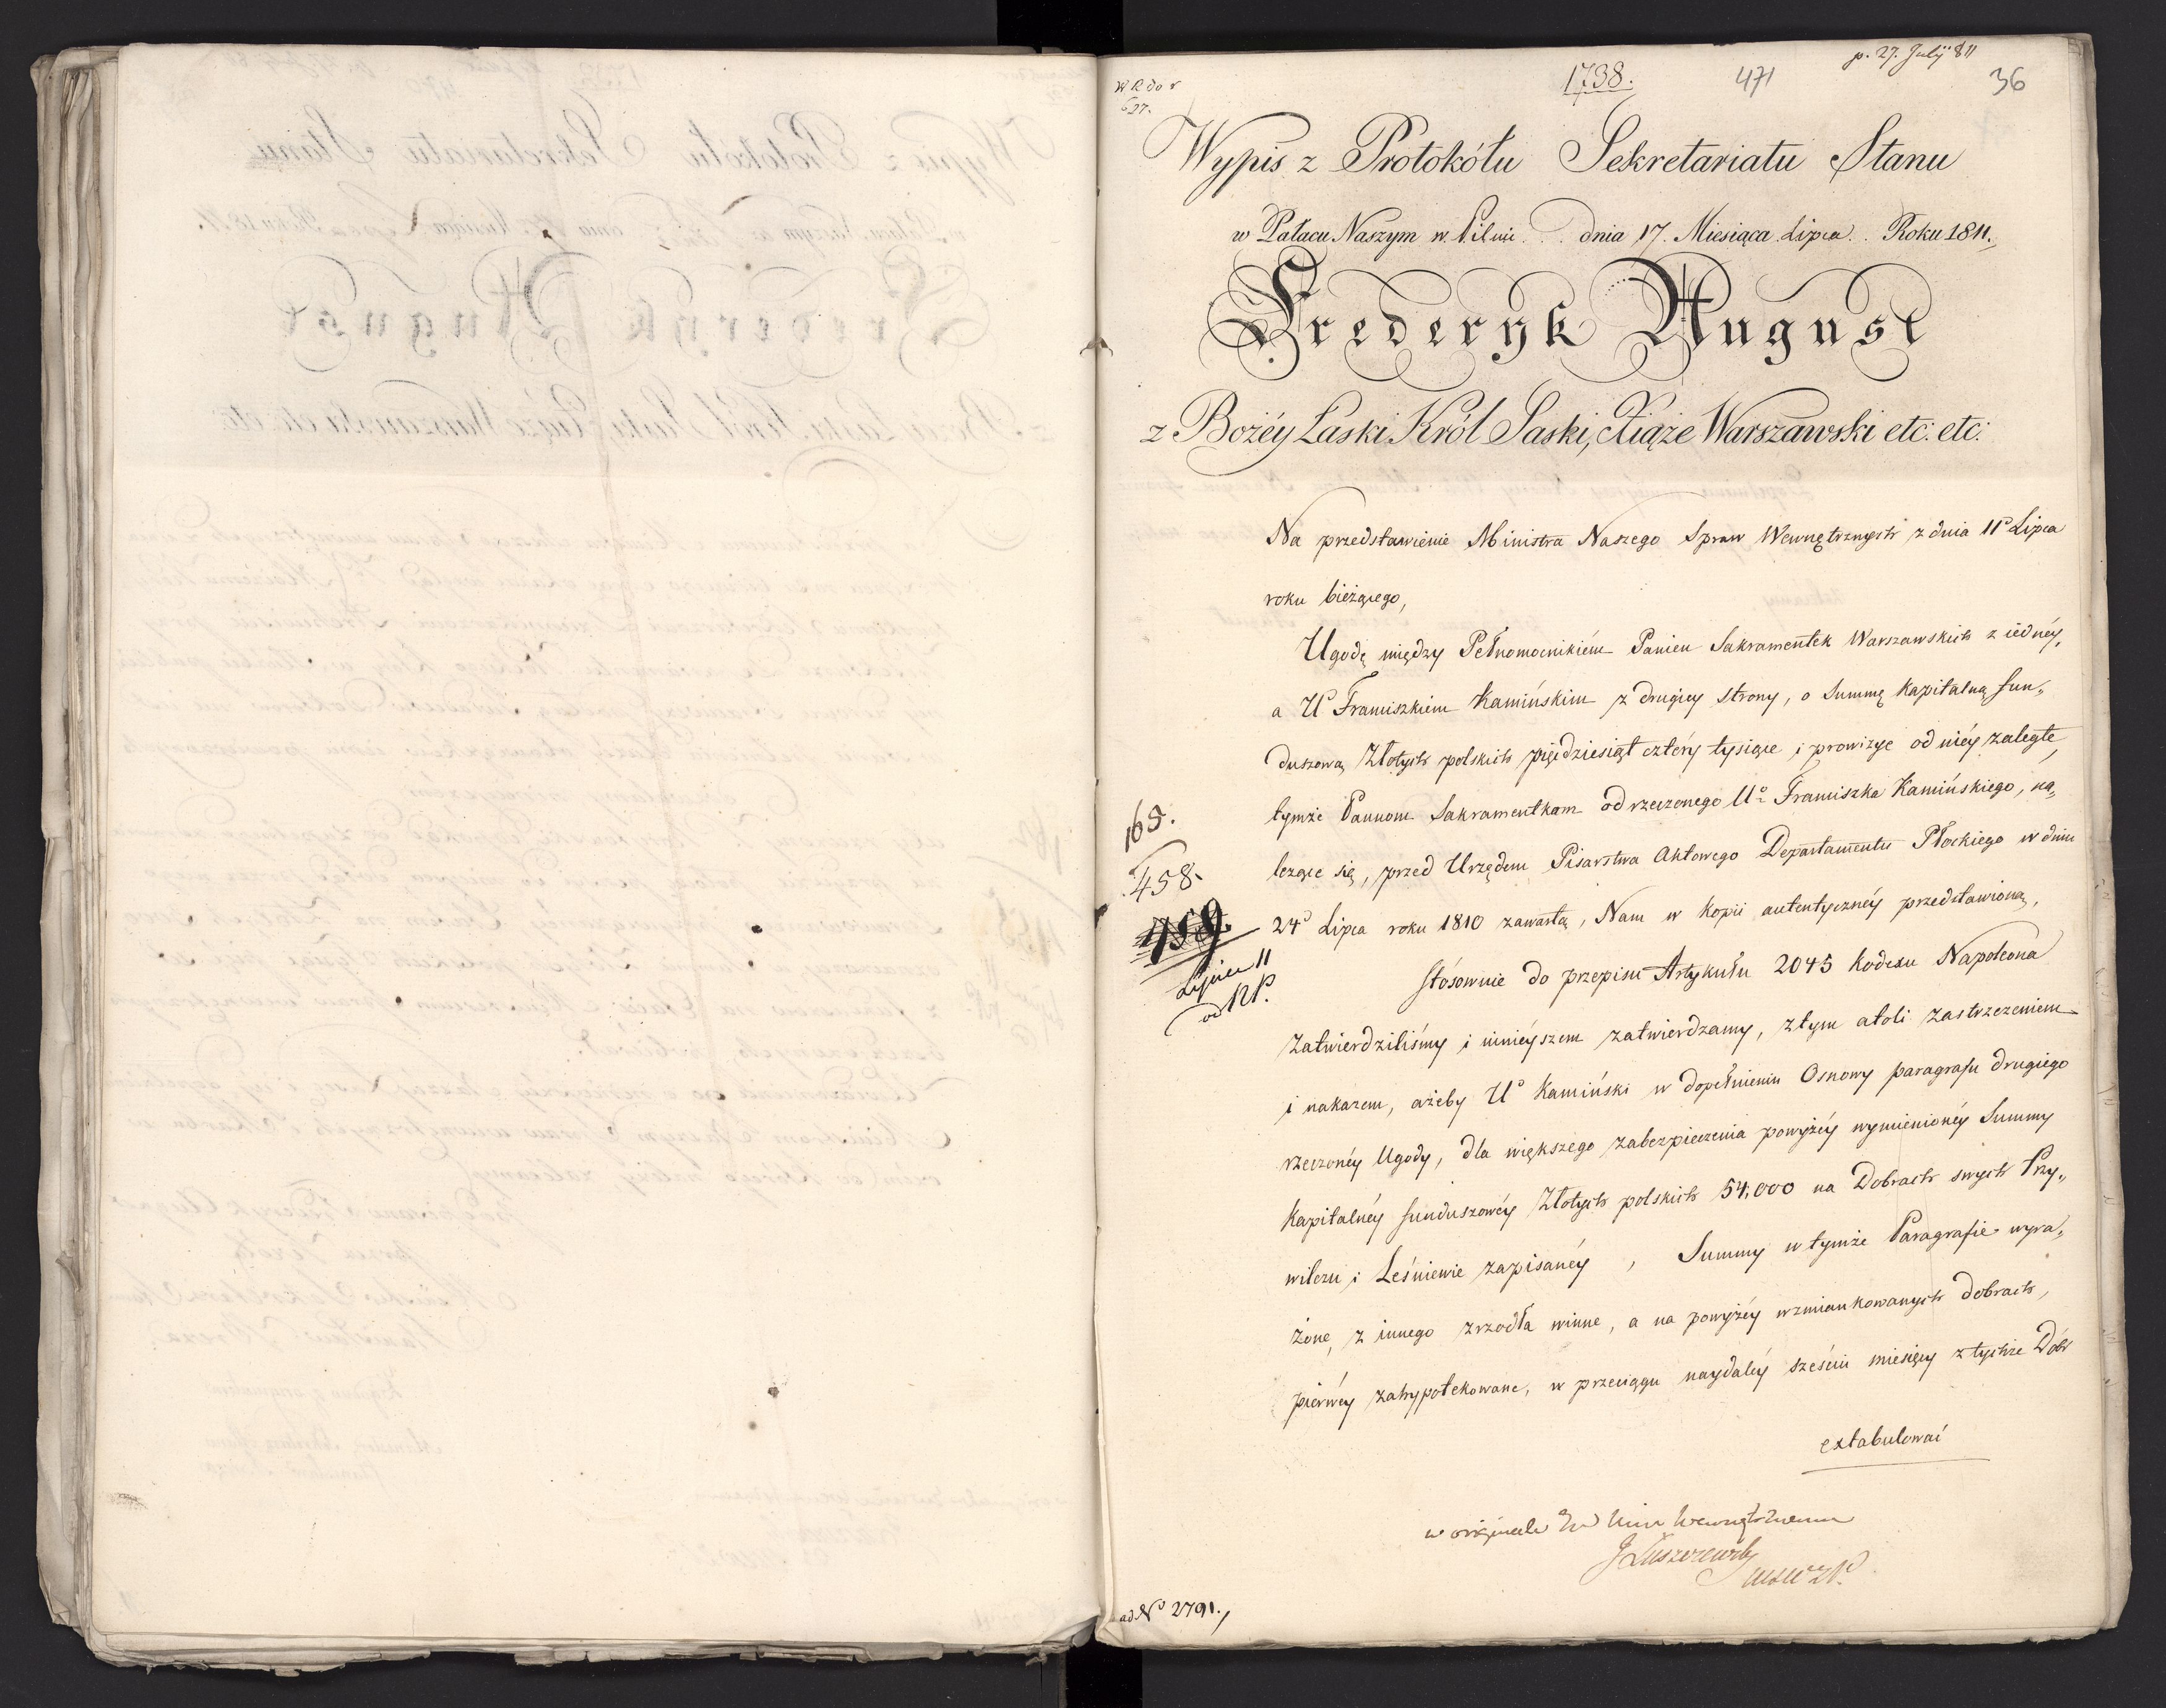 p. 27. July 811
1738.
471
36
627.
Wypis z Protokółu Sekretariatu Stanu
w Pałacu Naszym w Pilnic dnia 17. Miesiąca Lipca Roku 1811.
Frederyk August
z Bożéy Łaski Król Saski, Xiąże Warszawski etc: etc:
Na przedstawienie Ministra Naszego Spraw Wewnętrznych z dnia 11º Lipca
roku bieżącego,
Ugodę między Pełnomocnikiém Panien Sakramentek Warszawskich z iednéy,
a Uº Franciszkiem Kamińskim z drugiey strony, o Summę kapitalną fun„
duszową Złotych polskich pięćdziesiąt cztéry tysiące i prowizye od niéy zaległe,
tymże Pannom Sakramentkam od rzeczonego Uº Franciszka Kamińskiego, na„
leżące się, przed Urzędem Pisarstwa Aktowego Departamentu Płockiego w dniu
24º Lipca roku 1810 zawartą, Nam w kopii autentycznéy przedstawioną,
stósownie do przepisu Artykułu 2045 Kodexu Napoleona
zatwierdziliśmy i ninieyszem zatwierdzamy, z tym atoli zastrzeżeniem
i nakazem, ażeby Uº Kamiński w dopełnieniu Osnowy paragrafu drugiego
rzeczonéy Ugody, dla większego zabezpieczenia powyżéy wymienionéy Summy
kapitalnéy funduszowéy Złotych polskich 54,000 na Dobrach swych Przy„
wilczu i Leśniewie zapisanéy, Summy w tymże Paragrafie wyra„
żone, z innego zrzodła winne, a na powyżéy wzmiankowanych dobrach,
pierwéy zahypotekowane, w przeciągu naydaléy sześciu miesięcy z tychże Dóbr
extabulować
165.
458.
459.
Lipiec 11
w originale
JŁuszczewski
ad Nº 2791.